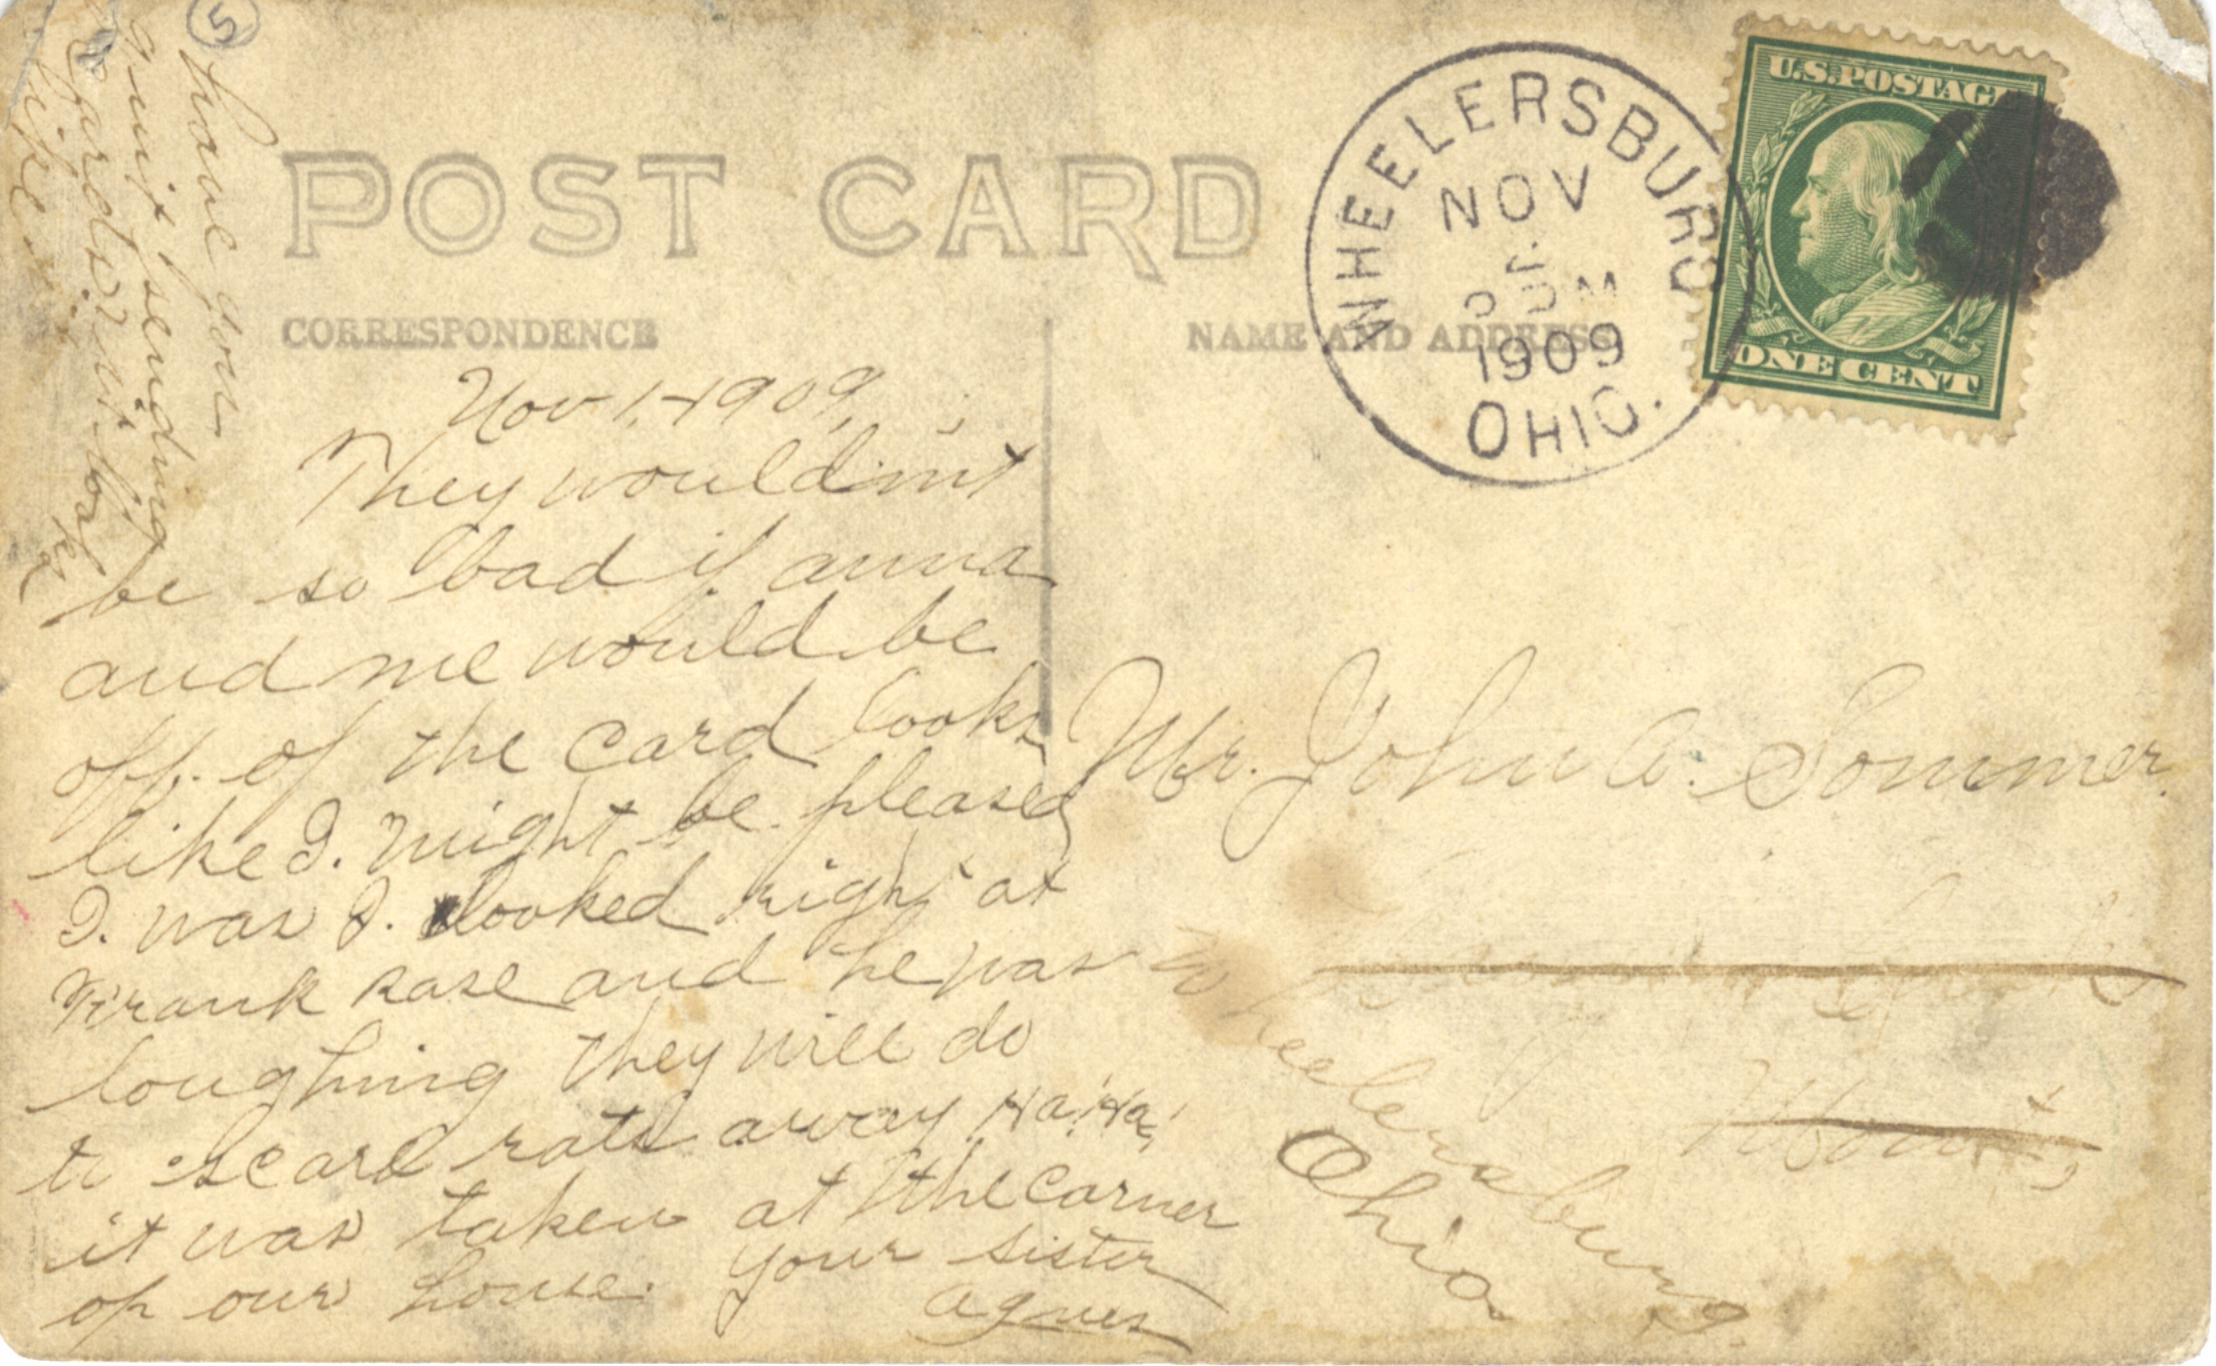 5
have you
quit sending
cards
like
POST CARD
CORRESPONDENCE
NAME AND ADDRESS
WHEELERSBURG
NOV
1909
OHIO.
U.S. POSTAGE
ONE CENT
Nov 1, 1909,
They wouldnnt
be so bad if anna
and me would be
off. of the card looks
like I. might be pleased
I. was I. looked right at
Frank Rase and he was
loughing they will do
to scare rats away Ha! Ha!
it was taken at the corner
of our house. your sister
Agnes
Mr. John A. Sommer.
Wheelersburg.
Ohio